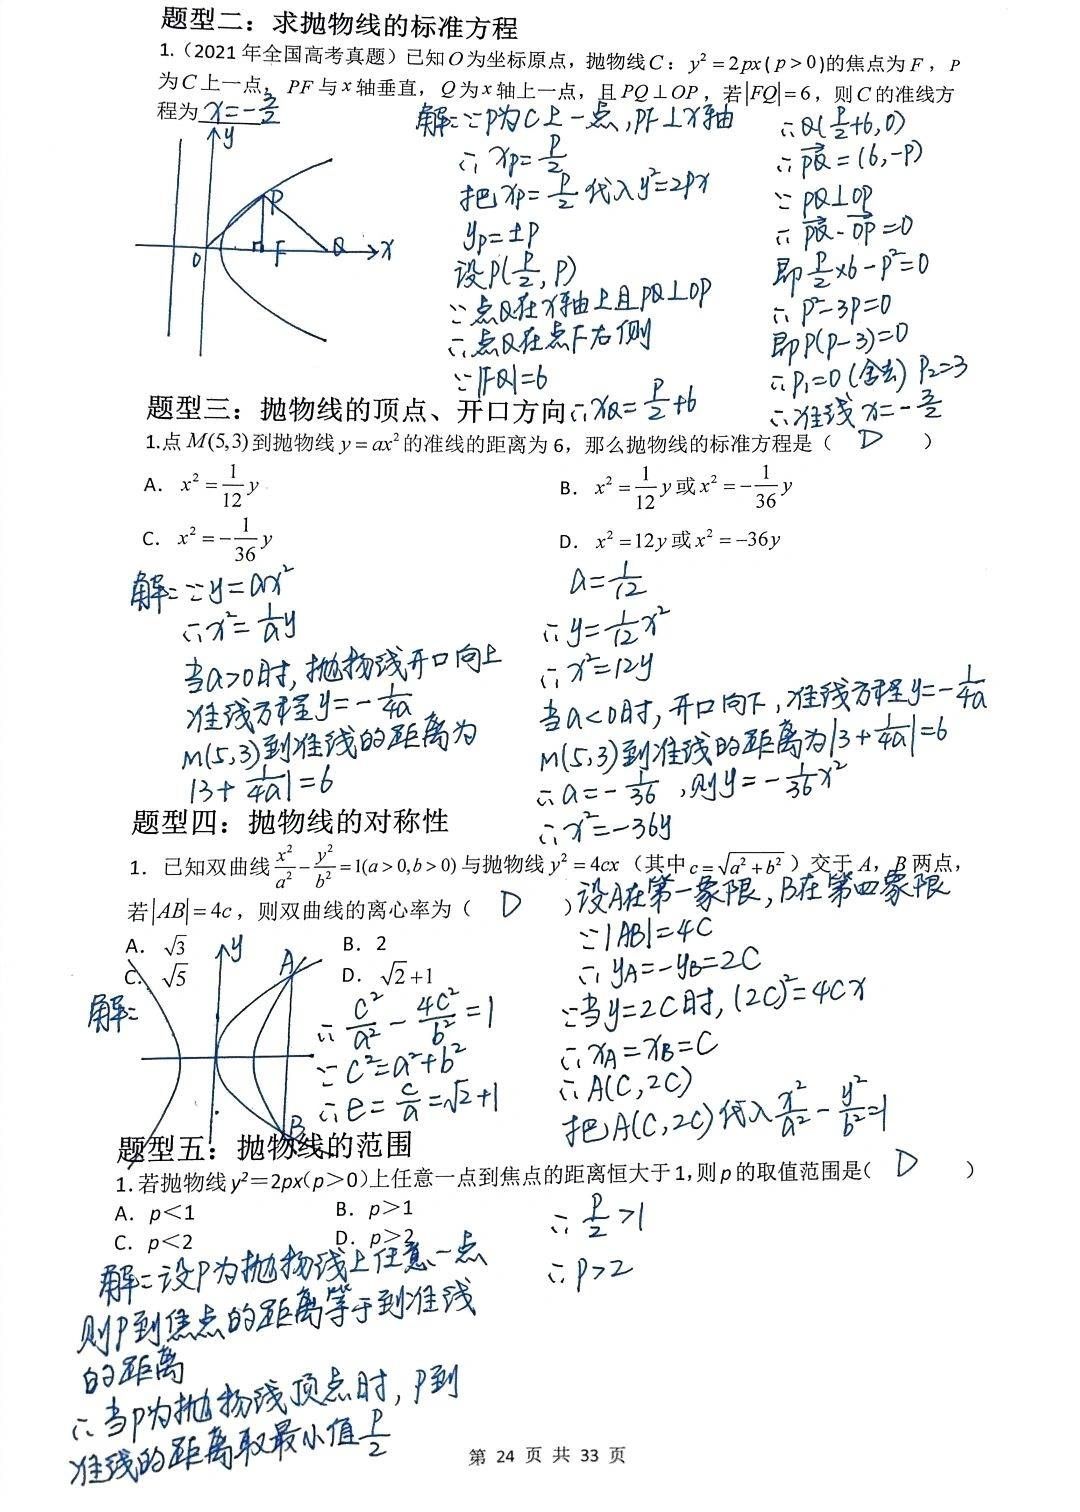 题型二：求抛物线的标准方程
1.（2021 年全国高考真题）已知O为坐标原点，抛物线C：y²=2px(p>0)的焦点为F，P
为C上一点，PF与x轴垂直，Q为x轴上一点，且PQ⊥OP，若|FQ|=6，则C的准线方
程为 x=-3/2
解:∵P为C上一点,PF⊥x轴
∴xp=p/2
把xp=p/2代入y²=2px
yp=±p
设P(p/2,p)
∵点Q在x轴上且PQ⊥OP
∴点Q在点F右侧
∵|FQ|=6
∴xQ=p/2+6
∴Q(p/2+6,0)
∴PQ=(6,-p)
∵PQ⊥OP
∴PQ·OP=0
即p/2×6-p²=0
∴p²-3p=0
即p(p-3)=0
∴p₁=0(舍去) p₂=3
∴准线x=-3/2
y
P
O F Q x
题型三：抛物线的顶点、开口方向
1.点M(5,3)到抛物线y=ax²的准线的距离为6，那么抛物线的标准方程是（ D ）
A．x²=1/12y
B．x²=1/12y或x²=-1/36y
C．x²=-1/36y
D．x²=12y或x²=-36y
解:∵y=ax²
∴x²=1/a y
当a>0时,抛物线开口向上
准线方程y=-1/4a
M(5,3)到准线的距离为
|3+1/4a|=6
a=1/12
∴y=1/12x²
∴x²=12y
当a<0时,开口向下,准线方程y=-1/4a
M(5,3)到准线的距离为|3+1/4a|=6
∴a=-1/36,则y=-1/36x²
∴x²=-36y
题型四：抛物线的对称性
1．已知双曲线x²/a²-y²/b²=1(a>0,b>0)与抛物线y²=4cx（其中c=√(a²+b²)）交于A，B两点，
若|AB|=4c，则双曲线的离心率为（ D ）
A．√3
B．2
C．√5
D．√2+1
y
A
B
解:
设A在第一象限,B在第四象限
∵|AB|=4c
∴yA=-yB=2c
∵当y=2c时,(2c)²=4cx
∴xA=xB=c
∴A(c,2c)
把A(c,2c)代入x²/a²-y²/b²=1
∴c²/a²-4c²/b²=1
∵c²=a²+b²
∴e=c/a=√2+1
题型五：抛物线的范围
1.若抛物线y²=2px(p>0)上任意一点到焦点的距离恒大于1,则p的取值范围是( D )
A．p<1
B．p>1
C．p<2
D．p>2
解:设P为抛物线上任意一点
则P到焦点的距离等于到准线
的距离
∴当P为抛物线顶点时,P到
准线的距离取最小值p/2
∴p/2>1
∴p>2
第 24 页 共 33 页